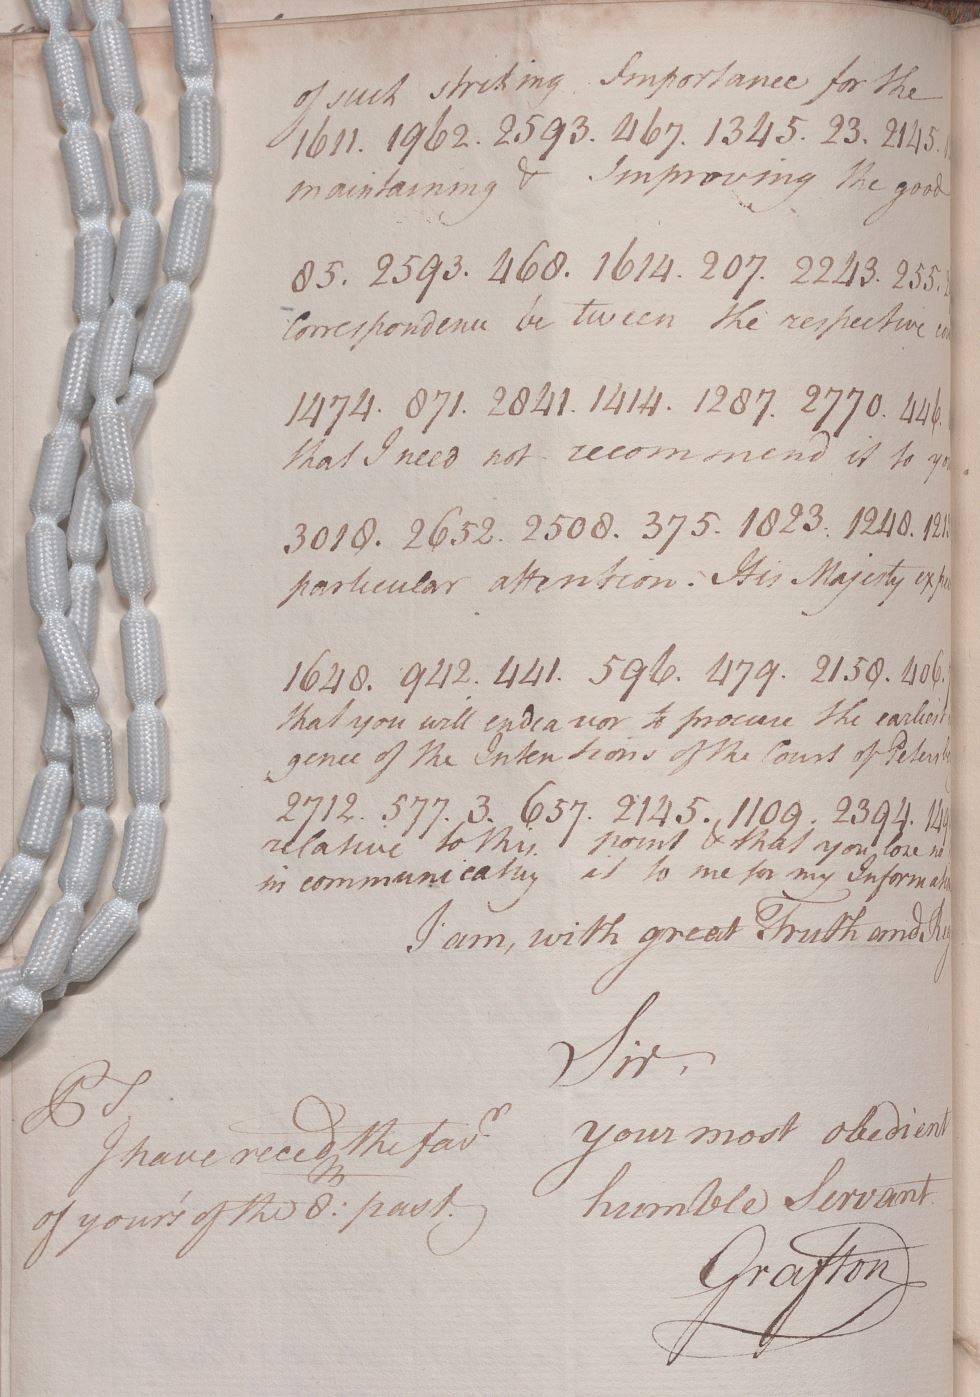 of such striking Importance for the
1611. 1962. 2593. 467. 1345. 23. 2145.
maintaining & Improving the good
85. 2593. 468. 1614. 207. 2243. 255.
Correspondence be tween the respective
1474. 871. 2841. 1414. 1287. 2770. 446.
that I need not recommend it to
3018. 2652. 2508. 375. 1823. 1248.
particular attention. His Majesty
1648. 942. 441. 596. 479. 2158. 406.
that you will endea vor to procure the earliest
gence of the Inten tions of the Court of
2712. 577. 3. 657. 2145. 1109. 2394.
relative to this point & that you lose no
in communicating it to me for my
I am, with great Truth and
Sir,
PS
I have reced the favr
your most obedient
of your's of the 8th: past.
humble Servant.
Grafton